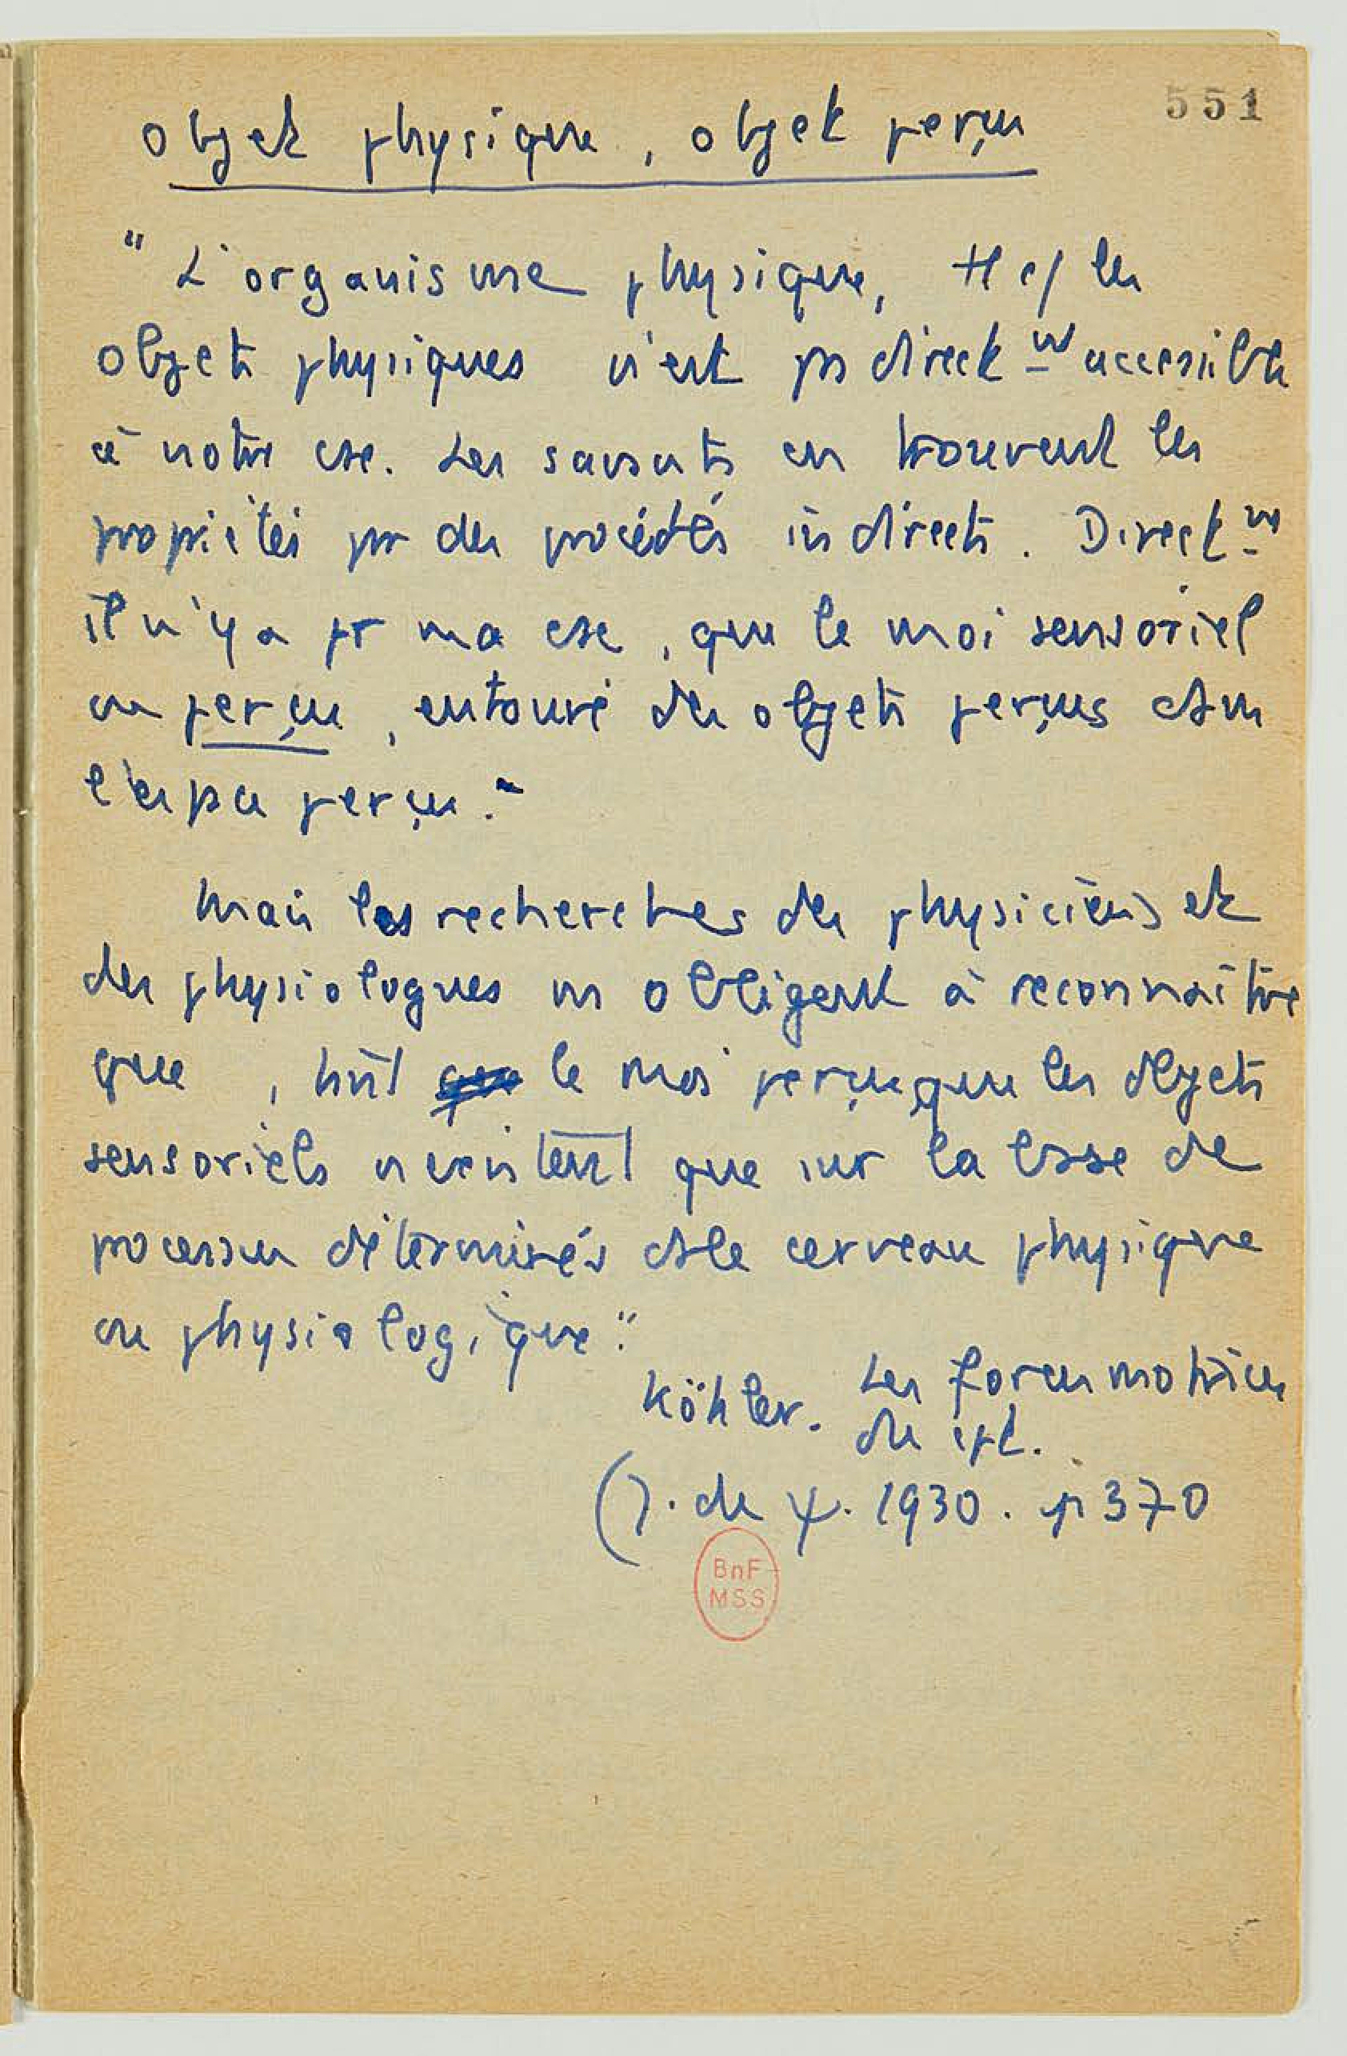 551
objet physique, objet perçu
"L'organisme physique, tt c/ les
objets physiques n'est ps direct m̲ accessible
à notre cse. Les savants en trouvent les
propriétés pr des procédés indirects. Direct m̲
il n'y a pr ma cse, que le moi sensoriel
ou perçu, entouré des objets perçus dans
l'espace perçu."
Mais les recherches des physiciens et
des physiologues ns obligent à reconnaître
que , le moi perçu, que les objets
sensoriels n'existent que sur la base de
processus déterminés ds le cerveau physique
ou physiologique".
Köhler. Les forces motrices
du cpt.
(J. de ψ. 1930. p 370
BnF
MSS